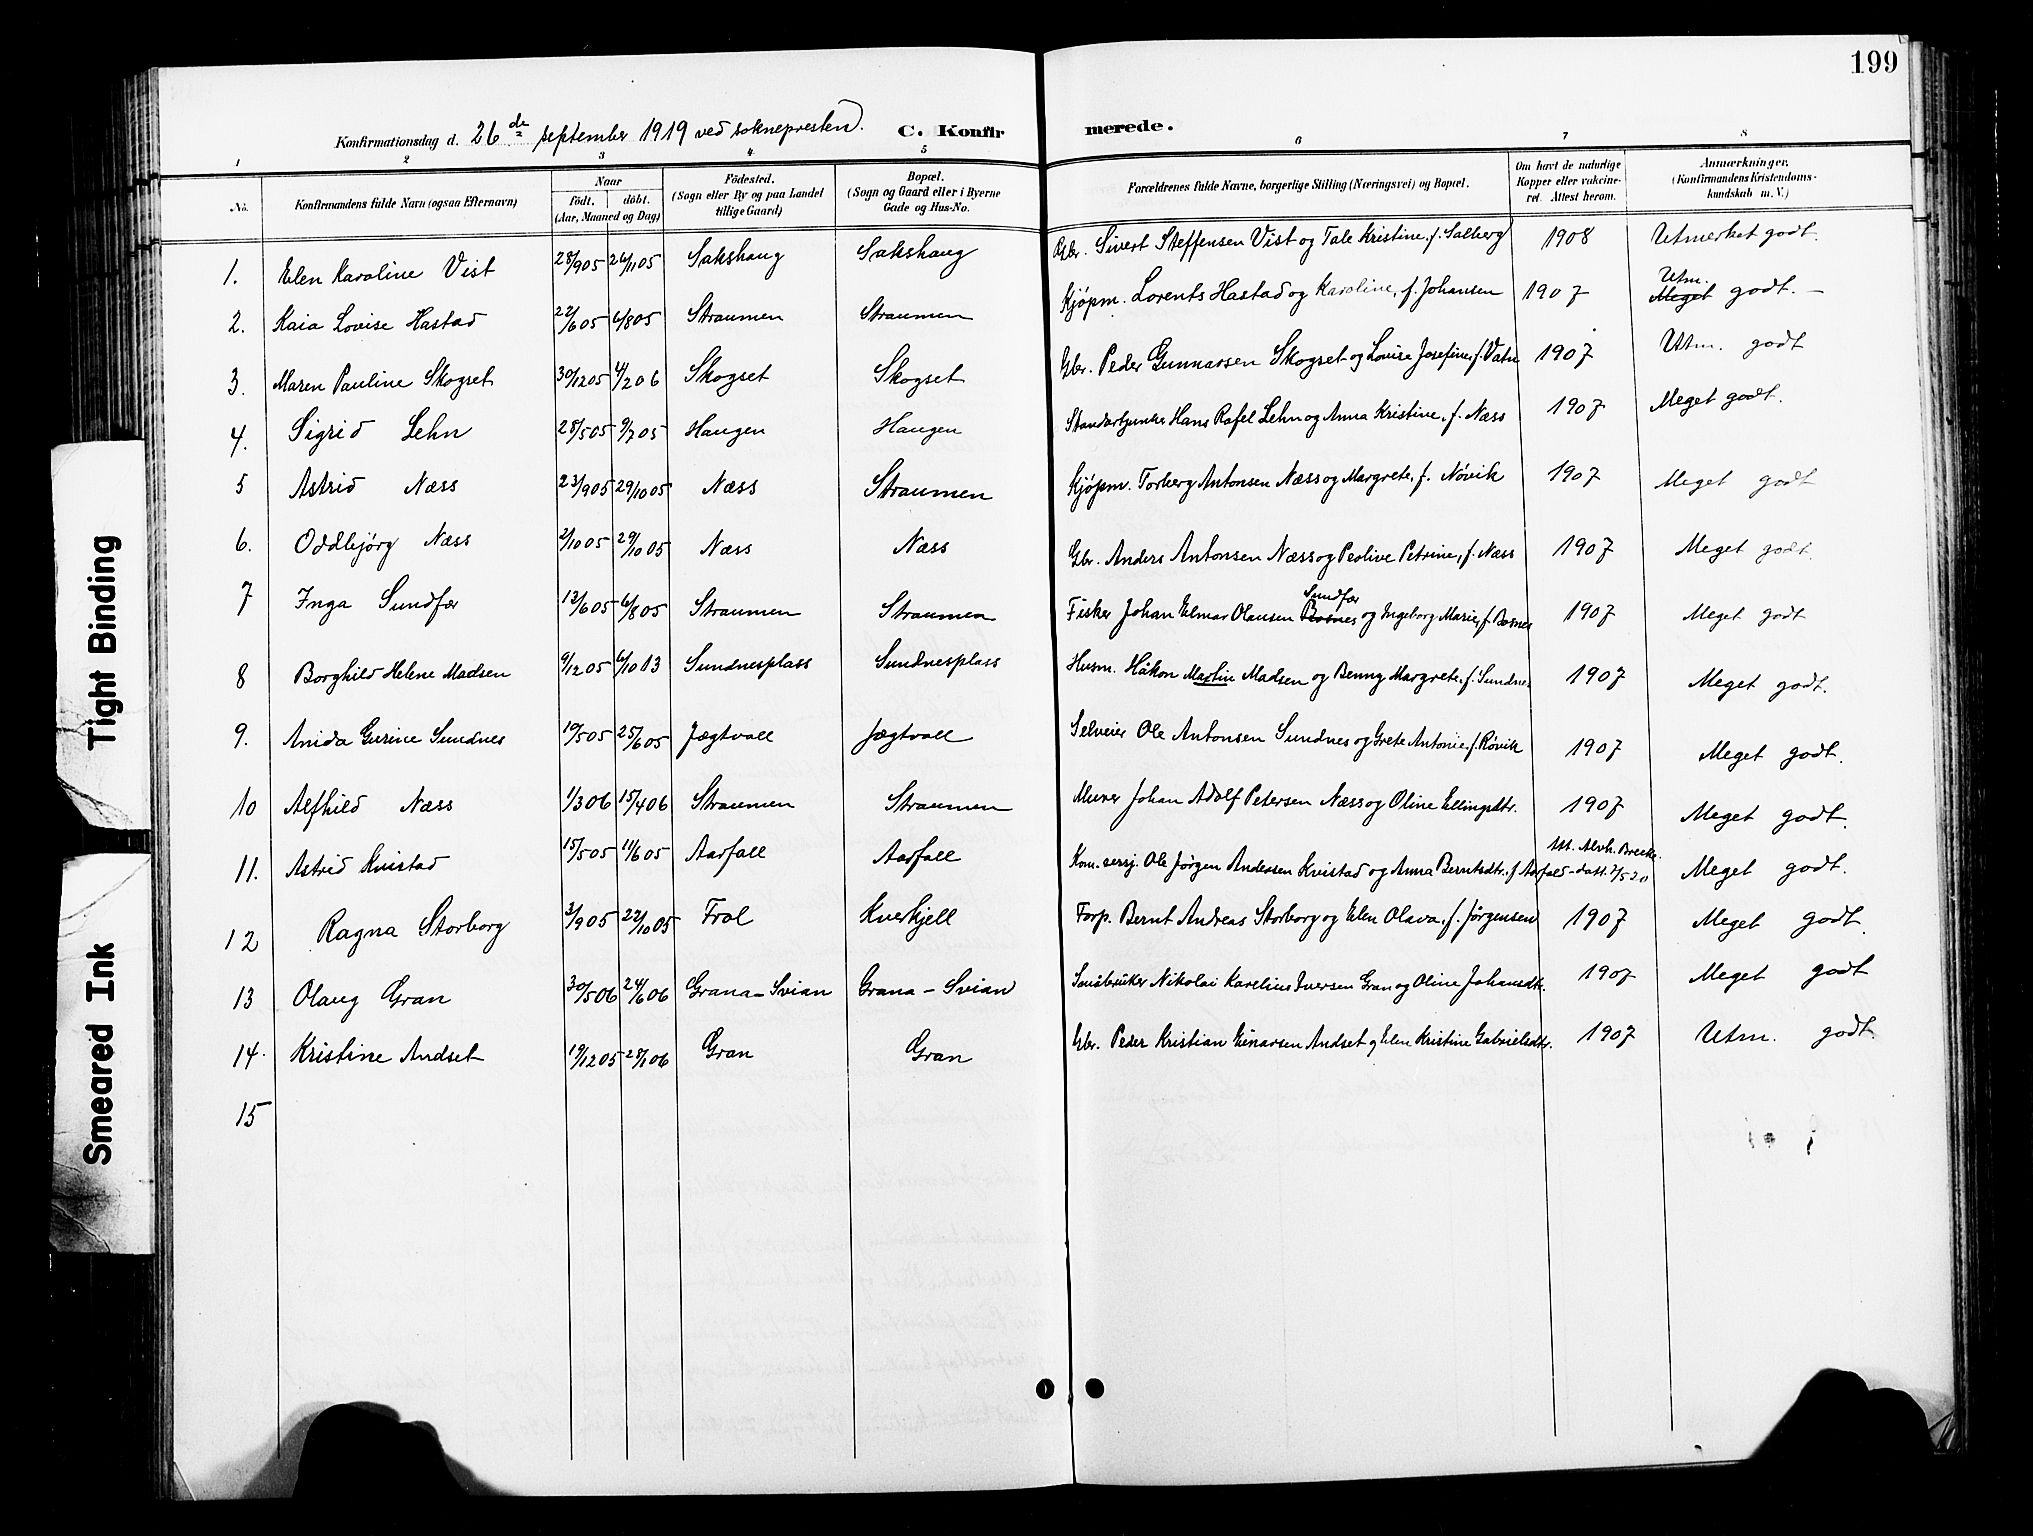 199
Konfirmationsdag d. 26de september 1919 ved soknepresten. C. Konfirmerede.
1 2 3 4 5 6 7 8
No. Konfirmandens fulde Navn (ogsaa Efternavn) Naar født. døbt. (Aar, Maaned og Dag) Fødested. (Sogn eller By og paa Landet tillige Gaard) Bopæl. (Sogn og Gaard eller i Byerne Gade og Hus-No. Forældrenes fulde Navne, borgerlige Stilling (Næringsvei) og Bopæl. Om havt de naturlige Kopper eller vaccineret. Attest herom. Anmærkninger. (Konfirmandens Kristendomskundskab m. V.)
1. Elen Karoline Vist 28/9 05 26/11 05 Sakshaug Sakshaug Gbr. Sivert Steffensen Vist og Tale Kristine, f. Salberg 1908 Utmerket godt.
2. Kaia Lovise Hastad 22/6 05 6/8 05 Straumen Straumen Kjøpm. Lorents Hastad og Karoline, f. Johansen 1907 Utm. Meget godt. –
3. Maren Pauline Skogset 30/12 05 4/2 06 Skogset Skogset Gbr. Peder Gunnarsen Skogset og Lovise Josefine, f. Vatn 1907 Utm. godt
4. Sigrid Lehn 28/5 05 9/7 05 Haugen Haugen Standartjunker Hans Rafel Lehn og Anna Kristine, f. Næss 1907 Meget godt.
5 Astrid Næss 23/9 05 29/10 05 Næss Straumen Kjøpm. Torberg Antonsen Næss og Margrete, f. Növik 1907 Meget godt
6. Oddbjørg Næss 2/10 05 29/10 05 Næss Næss Gbr. Anders Antonsen Næss og Peolive Petrine, f. Næss 1907 Meget godt.
7 Inga Sundfær 13/6 05 6/8 05 Straumen Straumen Fisker Johan Elmar Olausen Bosnes Sundfær og Ingeborg Marie, f. Bosnes 1907 Meget godt
8 Borghild Helene Madsen 9/12 05 6/10 13 Sundnesplass Sundnesplass Husm. Håkon Martin Madsen og Benny Margrete, f. Sundnes 1907 Meget godt.
9. Anida Gurine Sundnes 19/5 05 25/6 05 Jægtvoll Jægtvoll Selveier Ole Antonsen Sundnes og Grete Antonie, f. Røvik 1907 Meget godt.
10 Alfhild Næss 1/3 06 15/4 06 Straumen Straumen Murer Johan Adolf Petersen Næss og Oline Ellingsdtr. 1907 Meget godt.
11. Astrid Kvistad 15/5 05 11/6 05 Aarfall Aarfall Kom. sersj. Ole Jørgen Andersen Kvistad og Anna Berntsdtr. f. Aarfald – datt. 2/5 20 Meget godt.
12 Ragna Storborg 3/9 05 22/10 05 Frol Kverkjell Forp. Bernt Andreas Storborg og Elen Olava, f. Jørgensen 1907 Meget godt.
13 Olaug Gran 30/5 06 24/6 06 Grana – Svian Grana – Svian Småbruker Nikolai Karelius Iversen Gran og Oline Johansdtr. 1907 Meget godt
14. Kristine Andset 19/12 05 28/1 06 Gran Gran Gbr. Peder Kristian Einarsen Andset og Elen Kristine Gabrielsdtr. 1907 Utm. godt.
15
Tight Binding
Smeared Ink